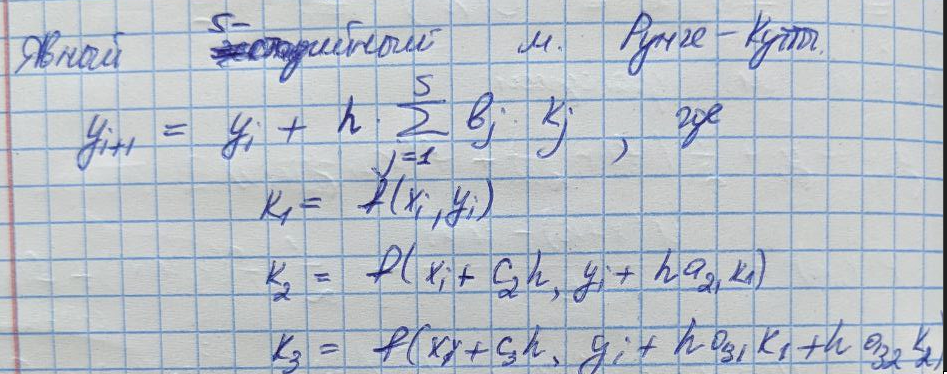 Явный s-стадийный м. Рунге-Кутты.
y_{i+1} = y_i + h · \sum_{j=1}^{s} b_j k_j , где
k_1 = f(x_i, y_i)
k_2 = f(x_i + c_2 h, y_i + h a_{21} k_1)
k_3 = f(x_i + c_3 h, y_i + h a_{31} k_1 + h a_{32} k_2)